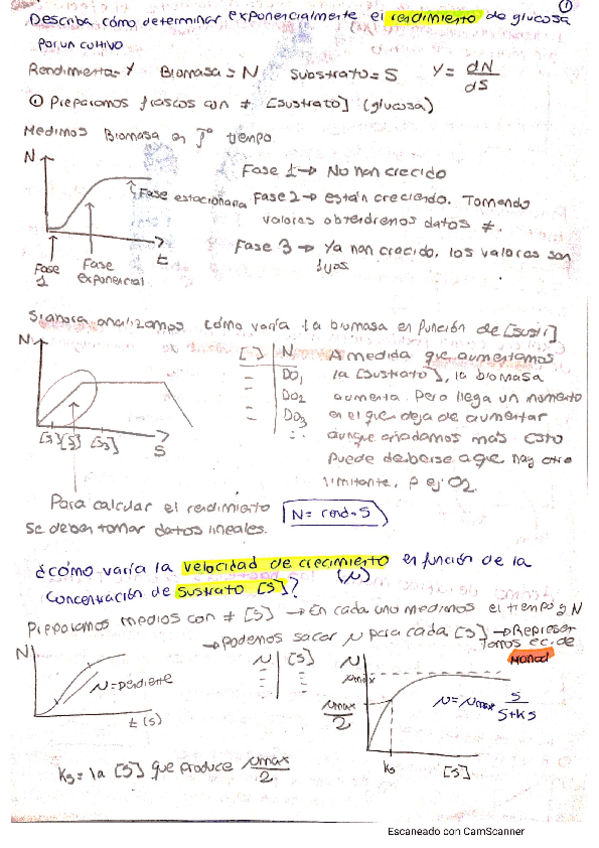 ①
Describa cómo determinar exponencialmente el rendimiento de glucosa
por un cultivo
Rendimiento = Y Biomasa = N Substrato = S Y = dN/dS
① Preparamos frascos con ≠ [sustrato] (glucosa)
Medimos Biomasa en tiempo
N
Fase 1 → No han crecido
Fase estacionaria
Fase 2 → están creciendo. Tomando
valores obtendremos datos ≠.
Fase 3 → Ya han crecido, los valores son
fijos
t
Fase 1
Fase exponencial
Si ahora analizamos cómo varía la biomasa en función de [sust]
N
[S] [S] [S3] S
[ ] N
– DO1
– DO2
– DO3
A medida que aumentamos
la [sustrato], la biomasa
aumenta. Pero llega un momento
en el que deja de aumentar
aunque añadamos más. Esto
puede deberse a que hay otro
limitante, p ej O2.
Para calcular el rendimiento
se deben tomar datos lineales.
N = rend · S
¿cómo varía la velocidad de crecimiento en función de la
(μ)
concentración de sustrato [S]?
Preparamos medios con ≠ [S] → En cada uno medimos el tiempo y N
→ podemos sacar μ para cada [S] → Represen
tamos ec. de
Monod
N
μ = pendiente
t (s)
μ [S]
μ
μmax
μmax/2
μ = μmax S/S+Ks
Ks [S]
Ks = la [S] que produce μmax/2
Escaneado con CamScanner